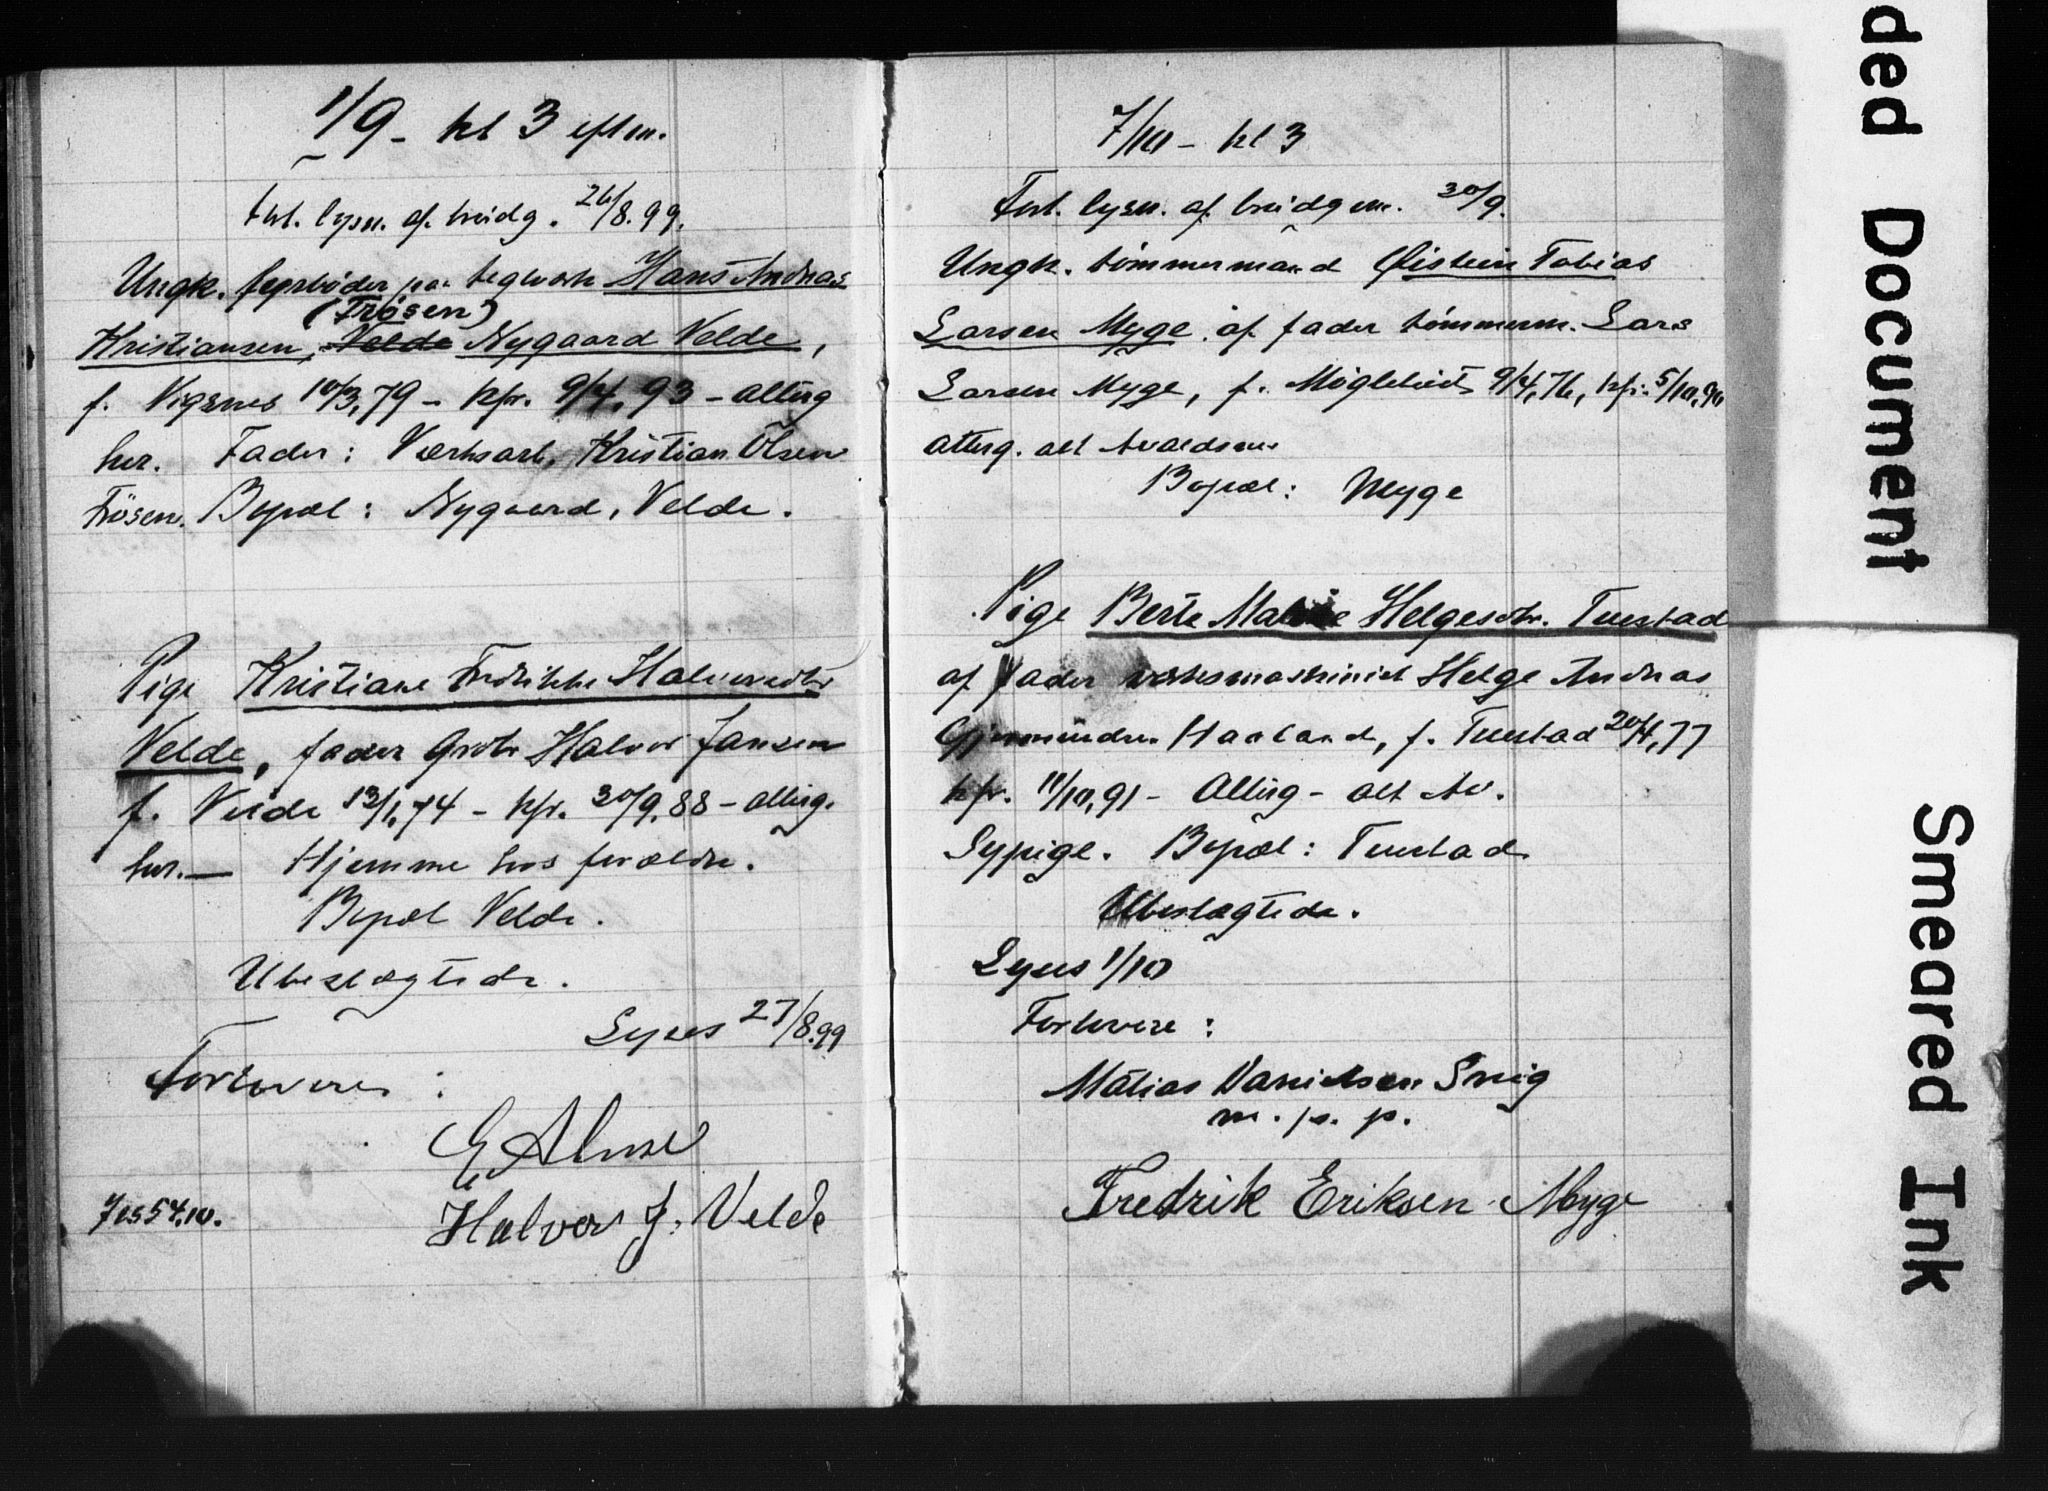 1/9 - kl 3 eftm.
Forl. lysn. af brudg. 26/8.99.
Ungk. fyrbøder paa teglverk Hans Andreas
(Frøsen)
Kristiansen, Velde Nygaard Velde,
f. Vigsnes 10/3,79 - kfr. 9/4,93 - altérg
her. Fader: Værksarb. Kristian Olsen
Frösen. Bopæl: Nygaard, Velde.
Pige Kristiane Fredrikke Halvorsdtr
Velde, fader Grbr Halvor Jansen
f. Velde 13/1,74 - kfr. 30/9,88 - alterg.
her. — Hjemme hos forældre.
Bopæl Velde.
Ubeslægtede.
Lyses 27/8.99
Forlovere:
E Alnse
Halvor J. Velde
7 os 54,10.
7/10 - kl 3
Forl. lysn. af brudgm. 30/9.
Ungk. tømmermand Øistein Tobias
Larsen Myge. af fader tømmerm. Lars
Larsen Myge, f. 9/4,76, kfr. 5/10,90
alterg. alt Avaldsnes
Bopæl: Myge
Pige Berte Malene Helgesdtr. Tuestad
af fader verksmaskinist Helge Andreas
Gjermundsn. Haaland, f. Tuestad 20/4,77
kfr. 11/10,91 - Alterg - alt Av.
Sypige. Bopæl: Tuestad
Ubeslægtede.
Lyses 1/10
Forlovere:
Matias Danielsen Snig
m. p. p.
Fredrik Eriksen Myge
ded Document
Smeared Ink